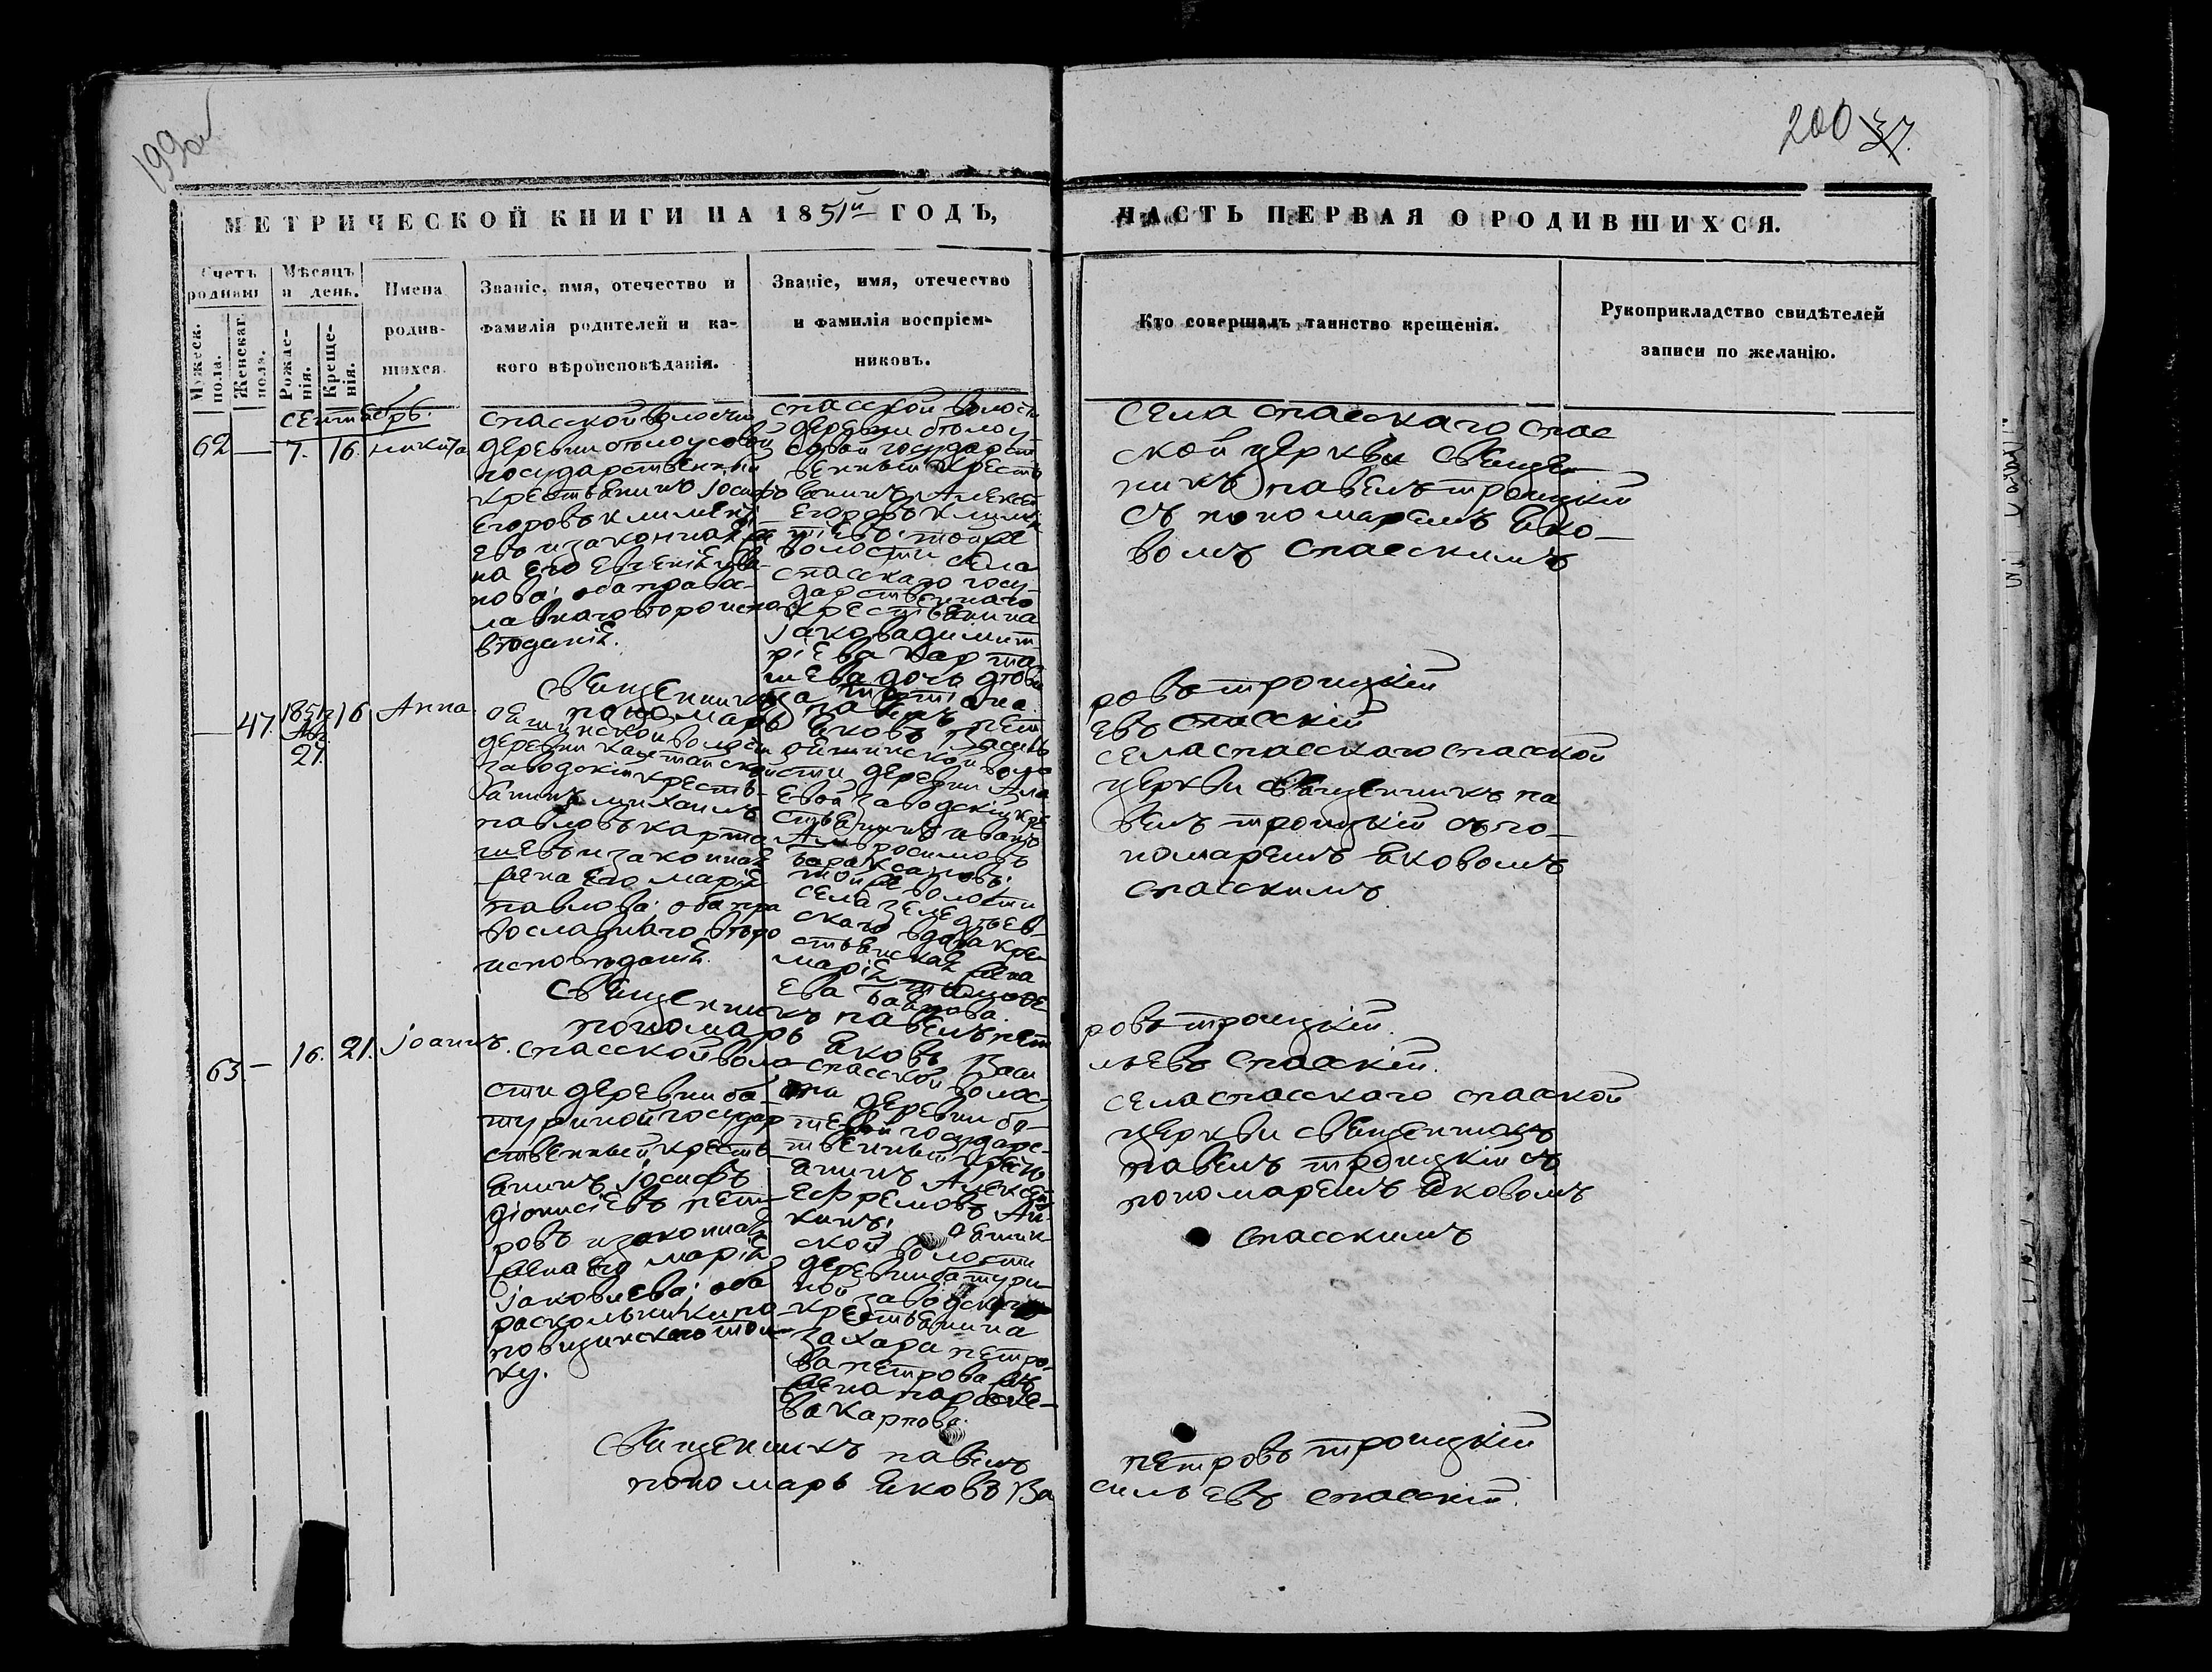 199об
200 37.
МЕТРИЧЕСКОЙ КНИГИ НА 1851й ГОДЪ,
ЧАСТЬ ПЕРВАЯ О РОДИВШИХСЯ.
Счетъ родивш
Мужеск. пола.
Женскаг. пола.
Мѣсяцъ и день.
Рожде-нія.
Креще-нія.
Имена
родив-
шихся.
Званіе, имя, отечество и
фамилія родителей и ка-
кого вѣроисповѣданія.
Званіе, имя, отечество
и фамилія воспріем-
никовъ.
Кто совершалъ таинство крещенія.
Рукоприкладство свидѣтелей
записи по желанію.
сентябрь.
62 — 7. 16. никита
спасской волости
деревни
государственный
крестьянинъ іосифъ
Егоровъ климент
евъ и законная же
на его Евгенія
нова; оба правос-
лавнаго вѣроиспо
вѣданія.
спасской волости
деревни
совой государст
венный кресть
янинъ Алексей
Егоровъ климен
тьевъ; той же
волости села
спасскаго госу-
дарственнаго
крестьянина
іакова димит
ріева карта
шева дочь дѣви
ца
села спасскаго спас
ской церкви священ-
никъ павелъ троицкій
съ пономаремъ Яко-
вомъ спасскимъ
Священникъ павелъ пет
ровъ троицкій
пономарь Яковъ Василь
евъ спасскій
— 47. 1851 27. 16. Анна
волости
деревни
заводскій кресть-
янинъ михаилъ
павловъ карта
шевъ и законная
жена его марія
павлова; оба пра
вославнаго вѣро
исповѣданія.
воло
сти деревни Ала
евой заводскій кре
стьянинъ иванъ
Амвросимовъ
той же волости
села зеледѣев-
скаго вдова кре
стьянская жена
марія тимофе
ева
села спасскаго спасской
церкви священникъ па
велъ троицкій съ по-
номаремъ Яковомъ
спасскимъ
Священникъ павелъ пет
ровъ троицкій.
пономарь Яковъ Васи
льевъ спасскій.
63 — 16. 21. іоаннъ.
спасской воло-
сти деревни ба-
туриной государ
ственный кресть-
янинъ іосифъ
діонисіевъ пет-
ровъ и законная
жена его марія
іаковлева; оба
раскольники по
повщинскаго тол-
ку.
спасской волос-
ти деревни
государс-
твенный кресть
янинъ Алексей
Ефремовъ
кинъ;
ской волости
деревни батури-
ной заводскаго
крестьянина
захара петро-
ва петрова
жена параске-
ва карпова.
села спасскаго спасской
церкви священникъ
павелъ троицкій съ
пономаремъ Яковомъ
спасскимъ
Священникъ павелъ
петровъ троицкій
пономарь Яковъ Ва
сильевъ спасскій.